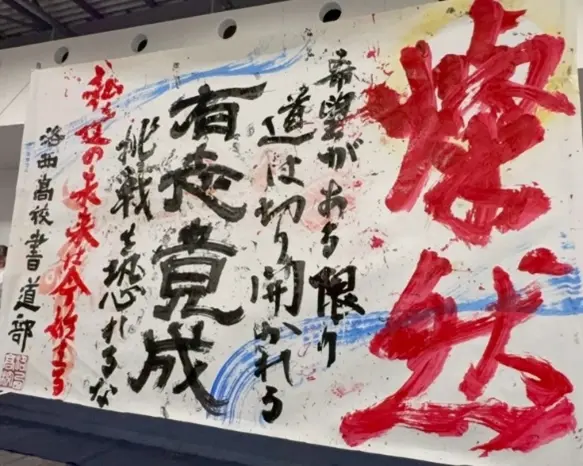 燦然
希望がある限り
道は切り開かれる
有志竟成
挑戦を恐れるな
私達の未来は今始まる
洛西高校書道部